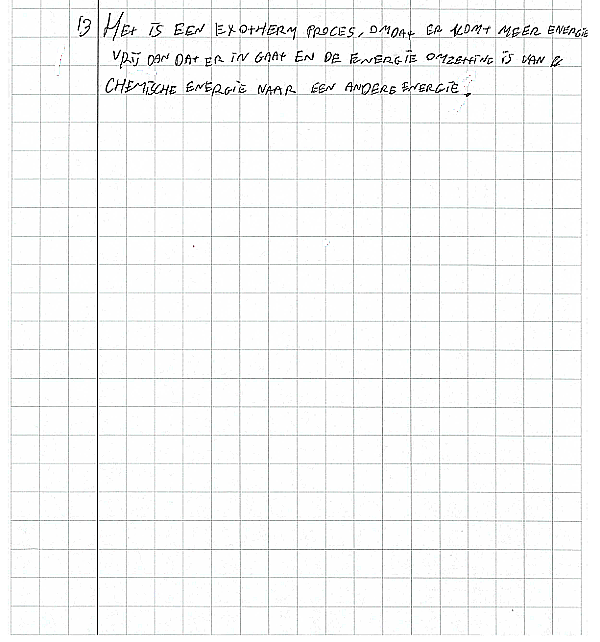 13 HEt IS EEN EXOtHERM PROCES, OMDAt ER KOMt MEER ENERGIE
VRIJ DAN DAt ER IN GAAt EN DE ENERGIE OMZEttING IS VAN
CHEMISCHE ENERGIE NAAR EEN ANDERE ENERGIE.